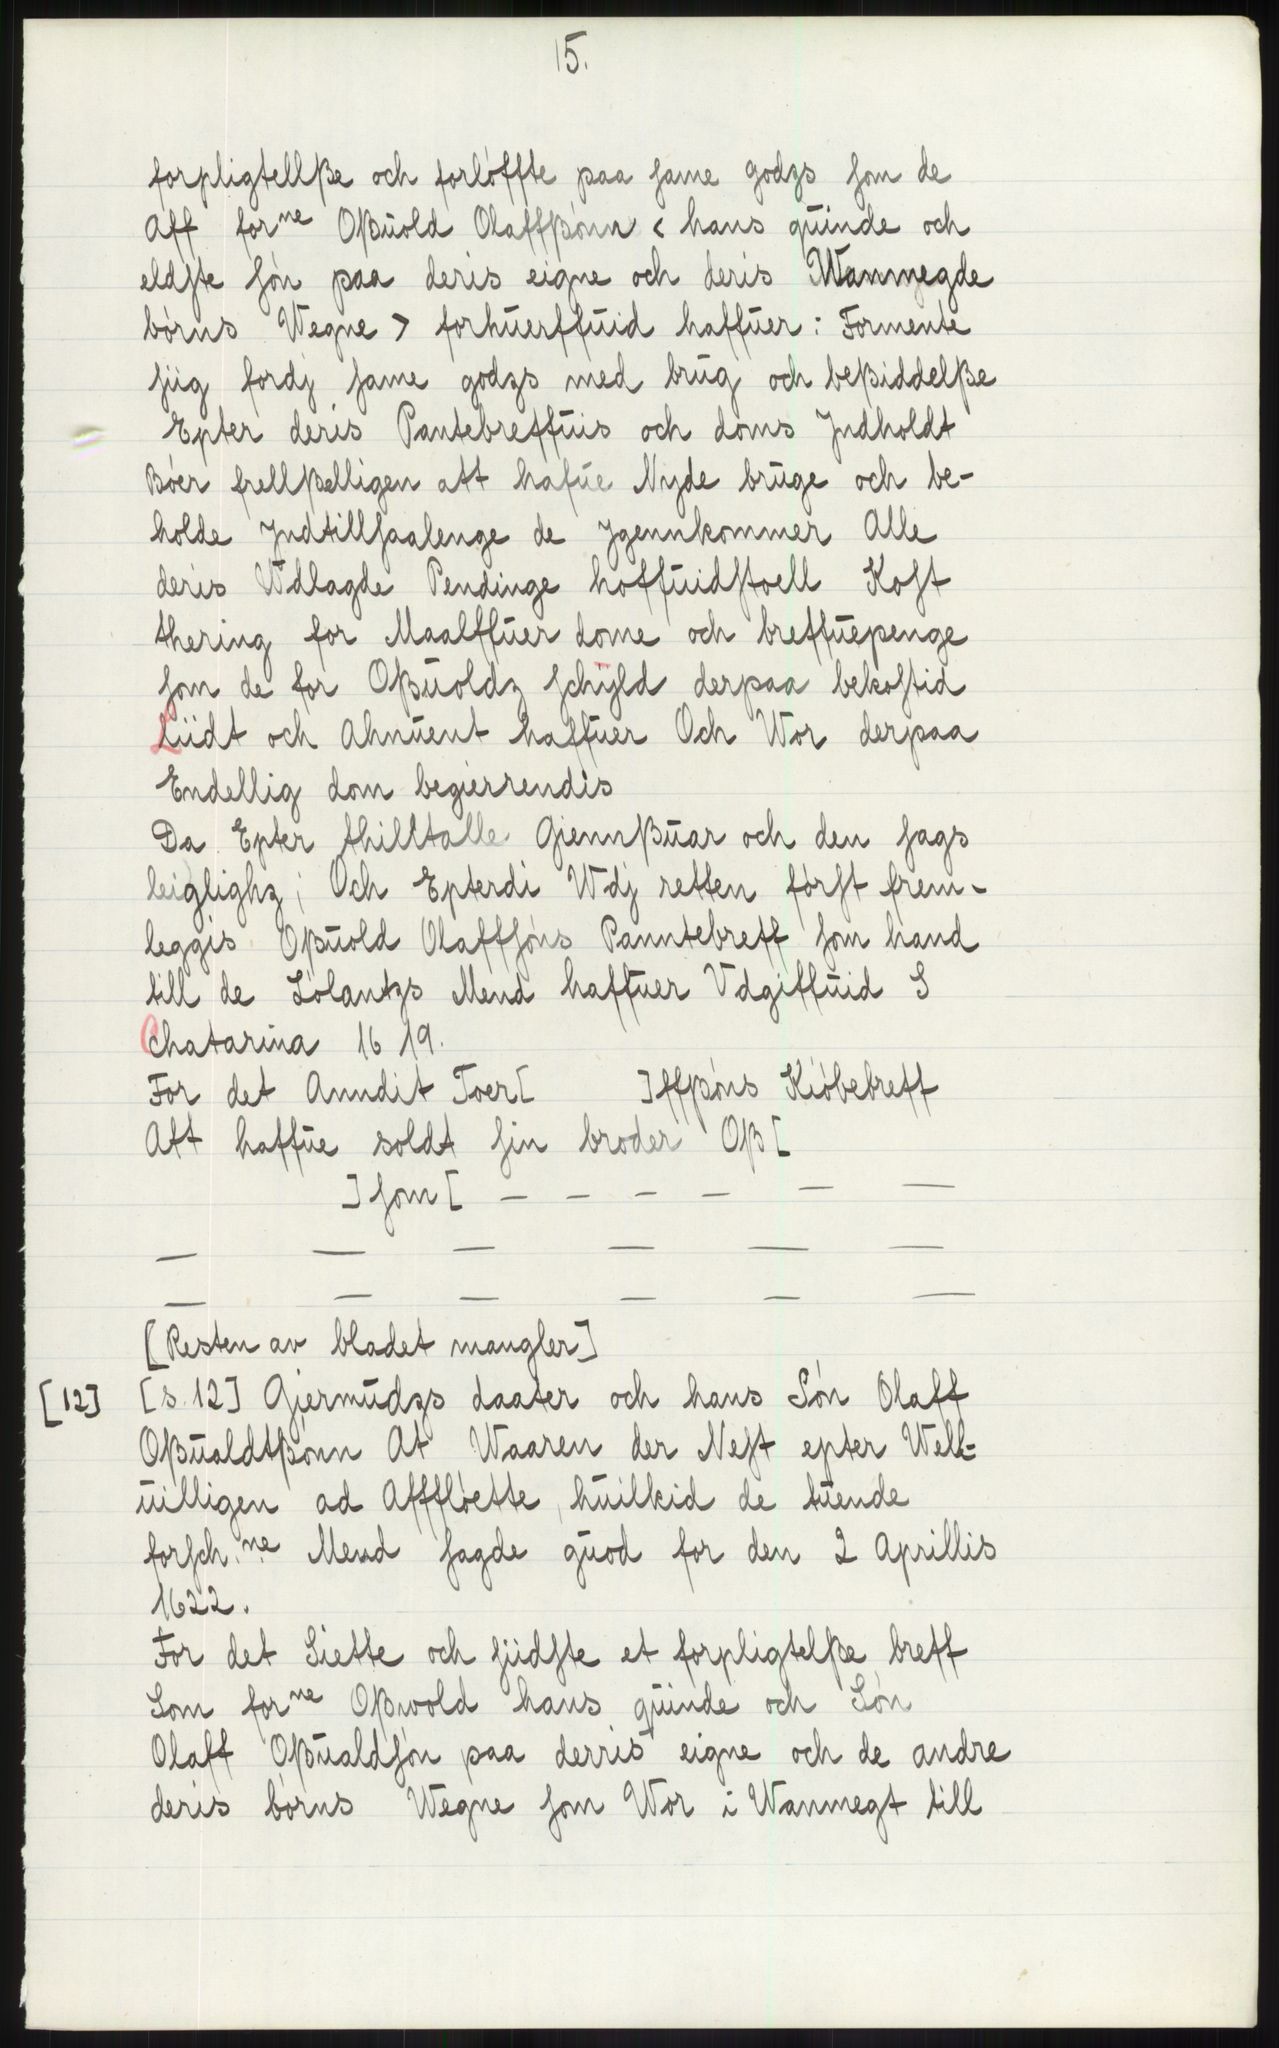 15.
forpligtellße och forløffte paa same godzs som de
Aff forne Oßuold Olaffßønn < hans quinde och
eldste søn paa deris eigne och deris Wanmegde
børns Wegne > forhuerffuid haffuer: Formente
siig fordj same godzs med brug och beßiddelße
Epter deris Pantebreffuis och doms Jndholdt
Bøer frellßelligen att hafue Nyde bruge och be-
holde Jndtillsaalenge de Jgennkommer Alle
deris Wdlagde Pendinge hoffuidstoell Kost
thering for Maalffuer dome och breffuepenge
som de for Oßuoldz schyld derpaa bekostid
Liidt och Ahnuent haffuer Och Wor derpaa
Endellig dom begierrendis
Da Epter thilltalle Gjennßuar och den sags
leiglighz; Och Epterdi Wdj retten først frem-
leggis Oßuold Olaffsøns Panntebreff som hand
till de Lolantzs Mend haffuer Vdgiffuid S
Chatarina 1619.
For det Anndit Toer[ ]ffßøns Kiøbebreff
Att haffue soldt sin broder Oß[
]som[ — — — — — —
— — — — — —
— — — — — —
[Resten av bladet mangler]
[12] [s. 12] Gjermudzs daater och hans Søn Olaff
Oßualdtßønn At Waaren der Nest epter Well-
uilligen ad Afffløette, huilkid de tuende
forsch.ne Mend sagde guod for den 2 Aprillis
1622.
For det Siette och siidste et forpligtelße breff
Som forne Oßwold hans quinde och Søn
Olaff Oßualdsøn paa derris eigne och de andre
deris børns Wegne som Wor i Wanmegt till